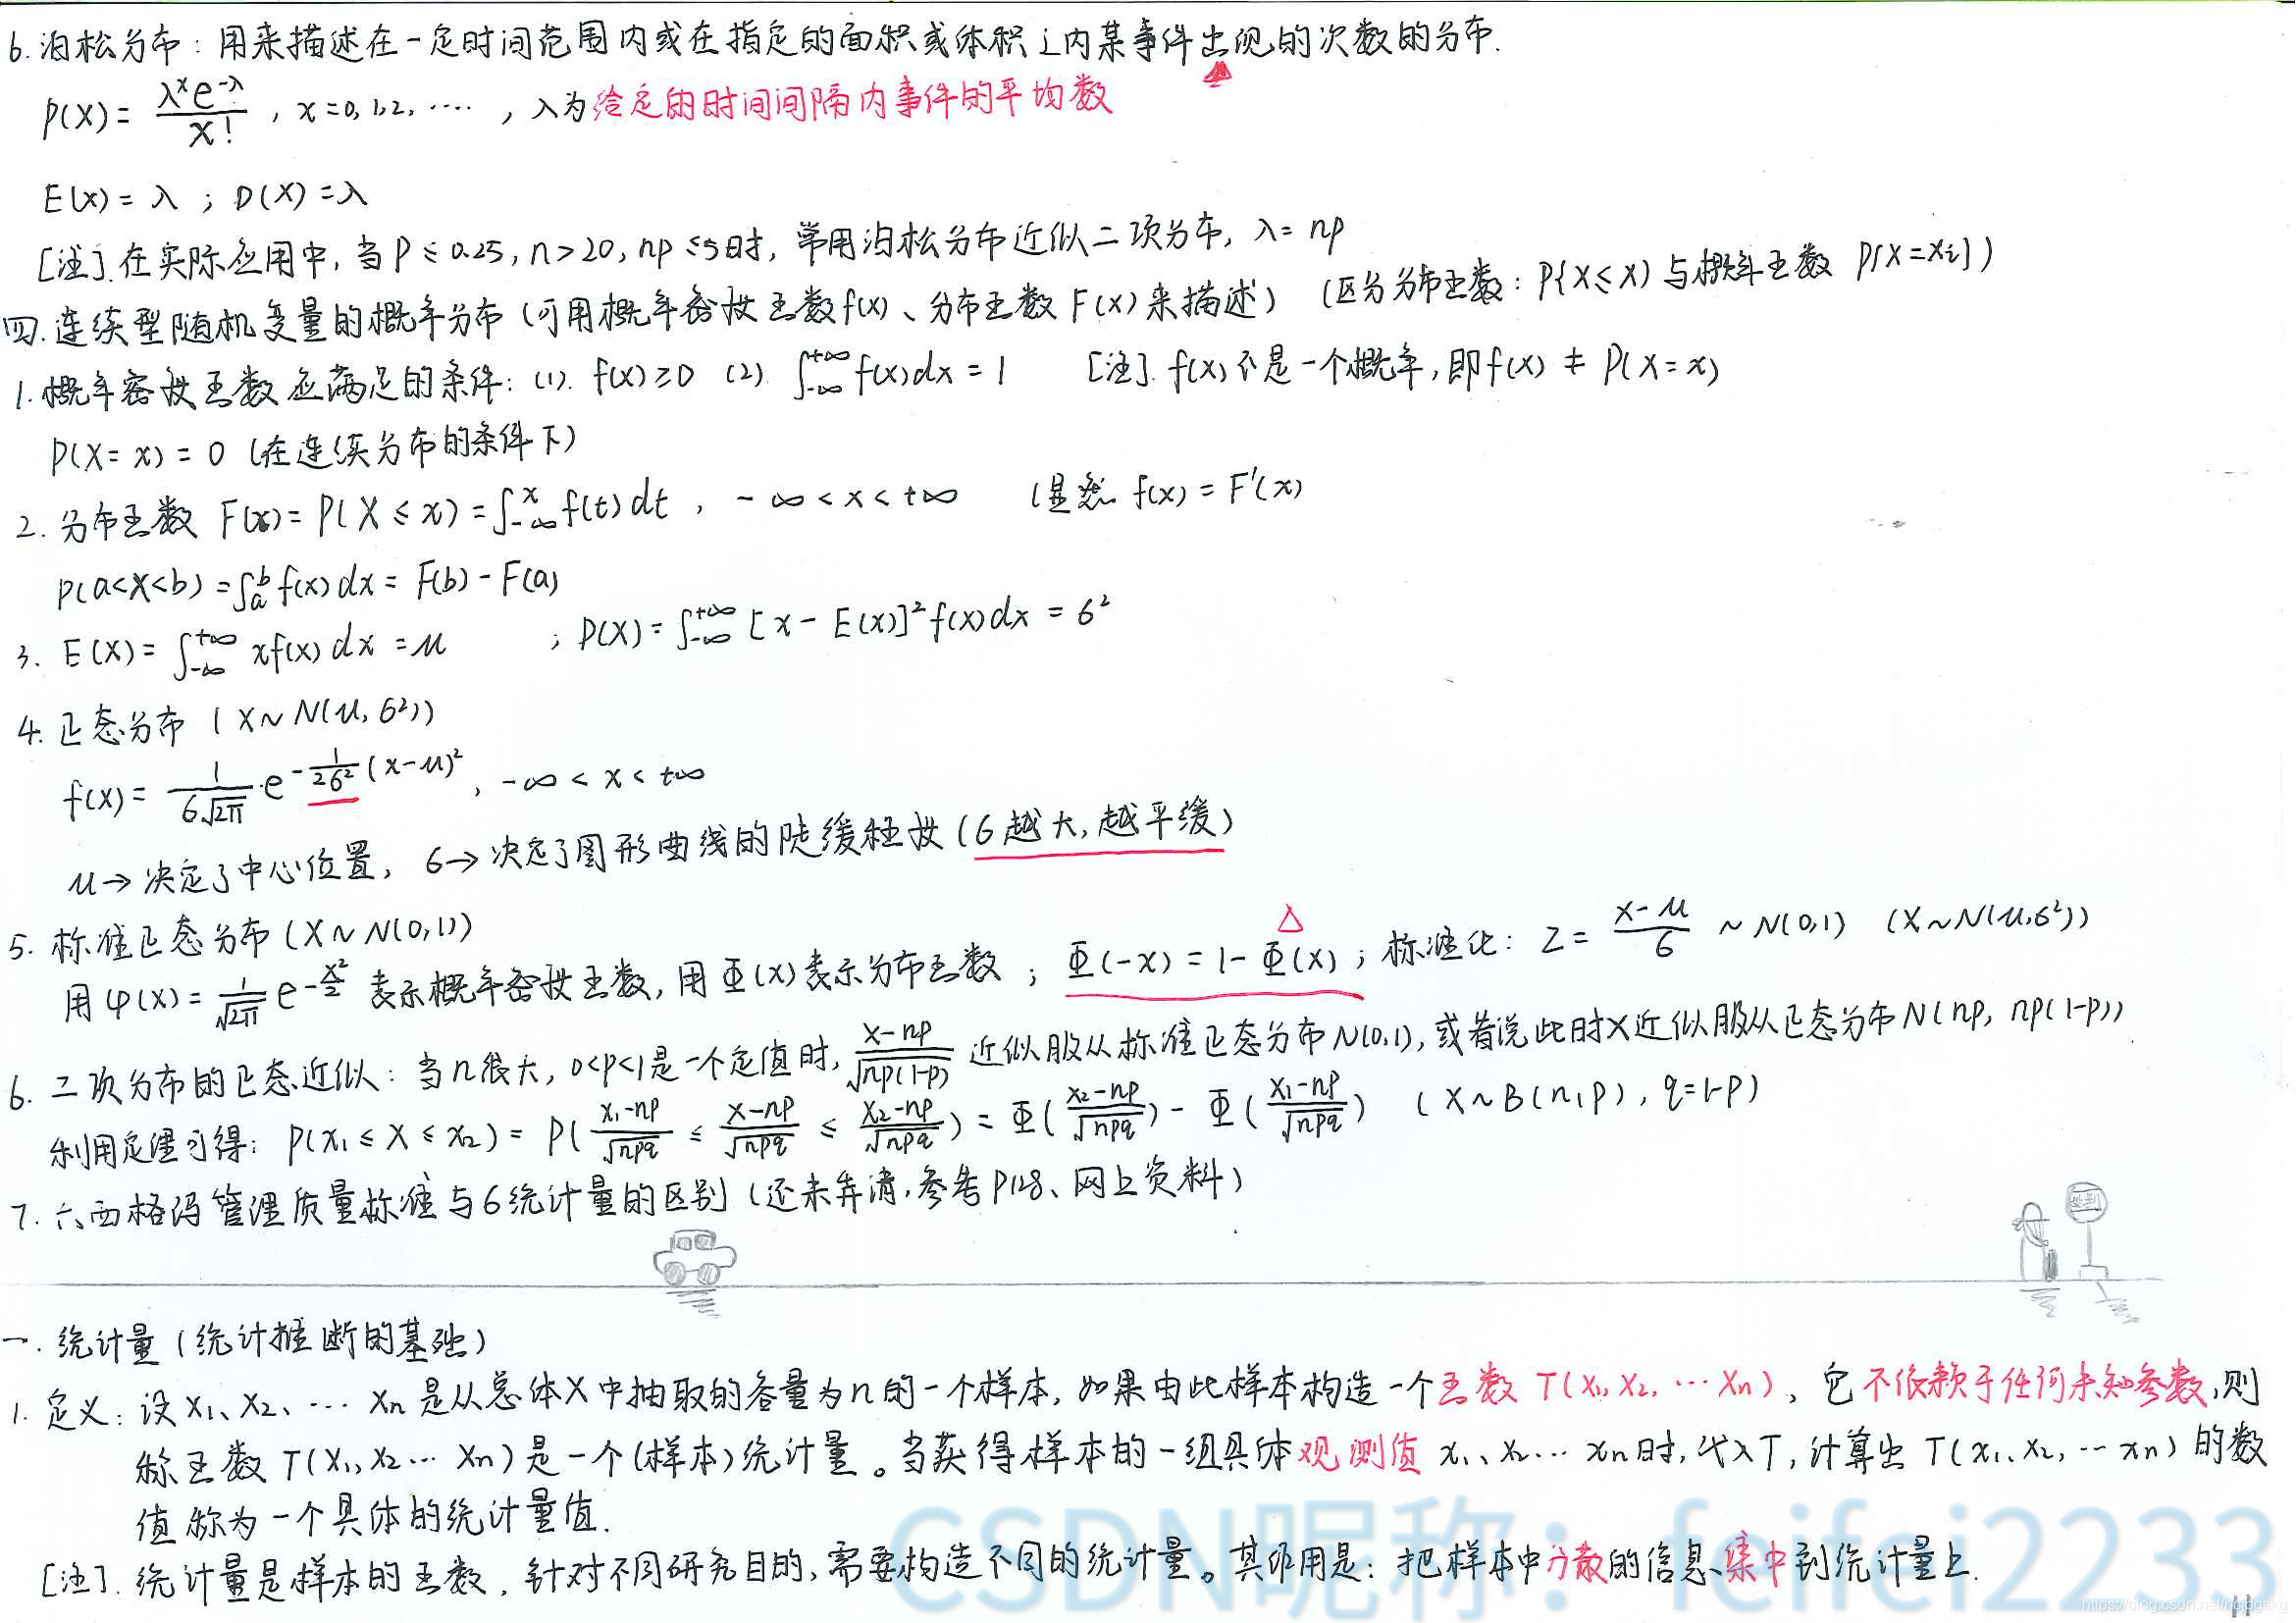 6. 泊松分布：用来描述在一定时间范围内或在指定的面积或体积之内某事件出现的次数的分布.
P(X) = λˣe^-λ / x! , x = 0, 1, 2, ‥‥ , λ为给定的时间间隔内事件的平均数
E(x) = λ ; D(X) = λ
[注]. 在实际应用中, 当 P ≤ 0.25, n > 20, np ≤ 5时, 常用泊松分布近似二项分布, λ = np
四. 连续型随机变量的概率分布 (可用概率密度函数f(x)、分布函数 F(x) 来描述) (区分分布函数: P{X ≤ x) 与概率函数 P{X = xi})
1. 概率密度函数应满足的条件: (1). f(x) ≥ 0 (2). ∫_-∞^+∞ f(x)dx = 1 [注]. f(x) 不是一个概率, 即 f(x) ≠ P(X = x)
P(X = x) = 0 (在连续分布的条件下)
2. 分布函数 F(x) = P(X ≤ x) = ∫_-∞^x f(t)dt , -∞ < x < +∞ (显然 f(x) = F'(x)
P(a<X<b) = ∫_a^b f(x)dx = F(b) - F(a)
3. E(X) = ∫_-∞^+∞ xf(x)dx = μ ; D(X) = ∫_-∞^+∞ [x - E(x)]² f(x)dx = σ²
4. 正态分布 (X ~ N(μ, σ²))
f(x) = 1/(σ√2π) · e^(-1/(2σ²) (x-μ)²) , -∞ < x < +∞
μ → 决定了中心位置, σ → 决定了图形曲线的陡缓程度 (σ越大, 越平缓)
△
5. 标准正态分布 (X ~ N(0,1))
用 φ(x) = 1/√2π e^(-x²/2) 表示概率密度函数, 用 Φ(x) 表示分布函数 ; Φ(-x) = 1 - Φ(x) ; 标准化: Z = (X-μ)/σ ~ N(0,1) (X ~ N(μ,σ²))
6. 二项分布的正态近似: 当 n 很大, 0<p<1是一个定值时, (X-np)/√np(1-p) 近似服从标准正态分布 N(0,1), 或者说此时X近似服从正态分布 N(np, np(1-p))
利用定理可得: P(x₁ ≤ X ≤ x₂) = P( (x₁-np)/√npq ≤ (X-np)/√npq ≤ (x₂-np)/√npq ) = Φ( (x₂-np)/√npq ) - Φ( (x₁-np)/√npq ) (X ~ B(n,p), q = 1-p)
7. 六西格玛管理质量标准与σ统计量的区别 (还未弄清, 参考 P128、网上资料)
一. 统计量 (统计推断的基础)
1. 定义: 设 X₁、X₂、… Xn 是从总体X中抽取的容量为n的一个样本, 如果由此样本构造一个函数 T(X₁, X₂, … Xn), 它不依赖于任何未知参数, 则
称函数 T(X₁, X₂ … Xn) 是一个(样本)统计量。当获得样本的一组具体观测值 x₁、x₂ … xn 时, 代入T, 计算出 T(x₁, x₂, … xn) 的数
值称为一个具体的统计量值.
[注]. 统计量是样本的函数, 针对不同研究目的, 需要构造不同的统计量。其作用是: 把样本中分散的信息集中到统计量上.
CSDN昵称：feifei2233